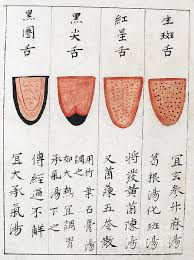 生斑舌
宜玄參升麻湯
葛根湯化斑湯
紅星舌
將發黃茵陳湯
又茵陳五苓散
黑尖舌
用竹葉石膏湯
調之
如大熱宜調胃
承氣湯下之
黑圈舌
傳經過不解
宜大承氣湯